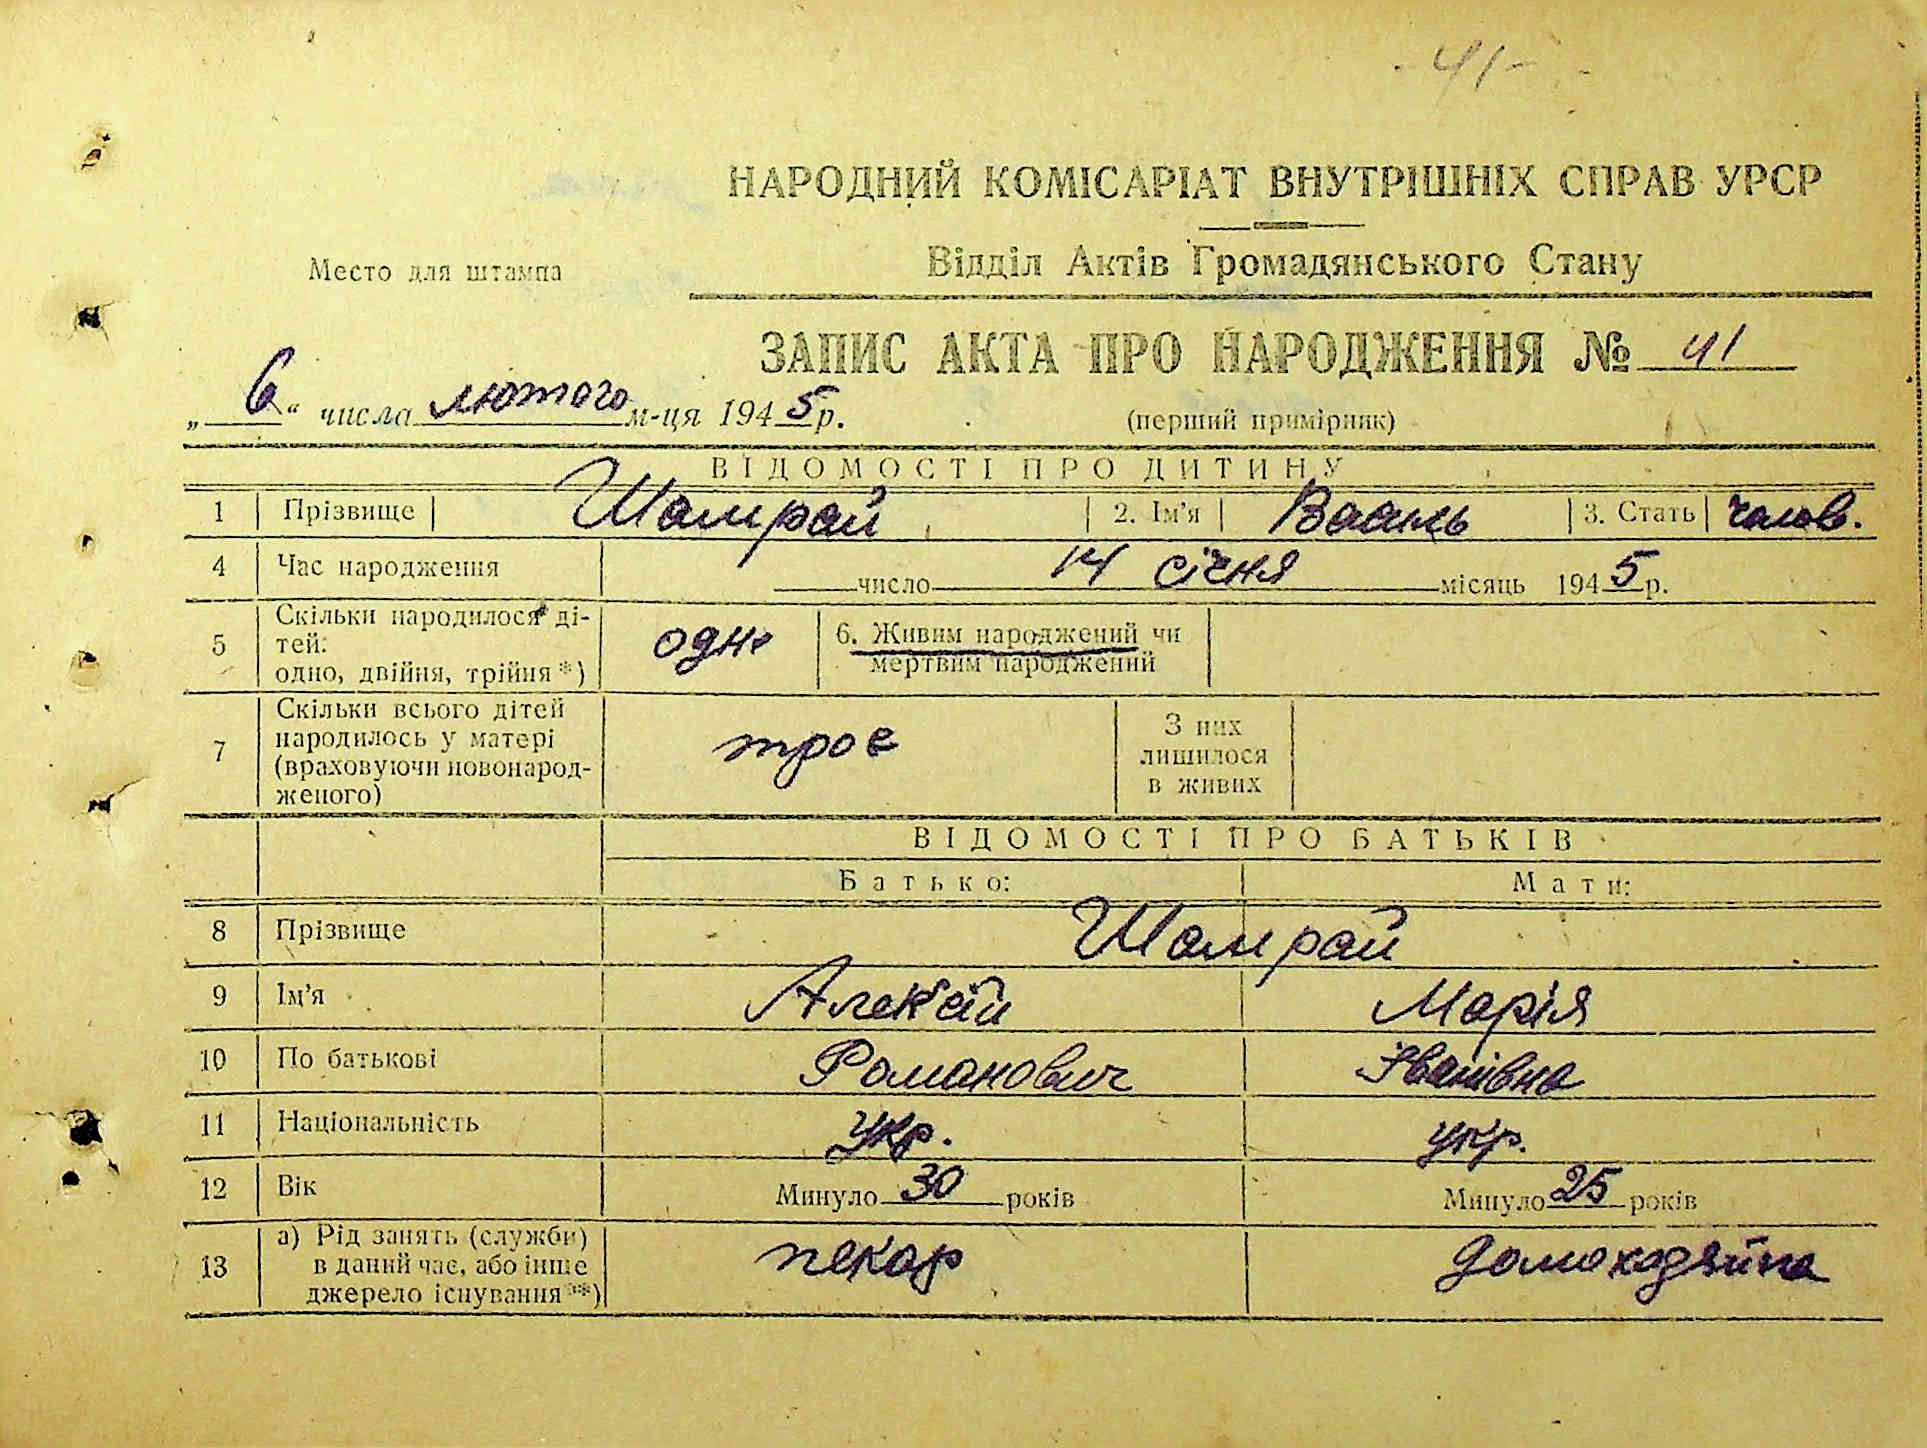 - 41 -
НАРОДНИЙ КОМІСАРІАТ ВНУТРІШНІХ СПРАВ УРСР
Відділ Актів Громадянського Стану
Место для штампа
ЗАПИС АКТА ПРО НАРОДЖЕННЯ № 41
„ 6 “ числа лютого м-ця 1945 р.
(перший примірник)
ВІДОМОСТІ ПРО ДИТИНУ
1 Прізвище Шамрай 2. Ім'я Василь 3. Стать чолов.
4 Час народження число 14 січня місяць 1945 р.
5 Скільки народилося ді-
тей:
одно, двійня, трійня *) одне 6. Живим народжений чи
мертвим народжений
7 Скільки всього дітей
народилось у матері
(враховуючи новонарод-
женого) троє З них
лишилося
в живих
ВІДОМОСТІ ПРО БАТЬКІВ
Батько: Мати:
8 Прізвище Шамрай
9 Ім'я Алексій Марія
10 По батькові Романович Іванівна
11 Національність укр. укр.
12 Вік Минуло 30 років Минуло 25 років
13 а) Рід занять (служби)
в даний час, або інше
джерело існування **) пекар домоходзяйка